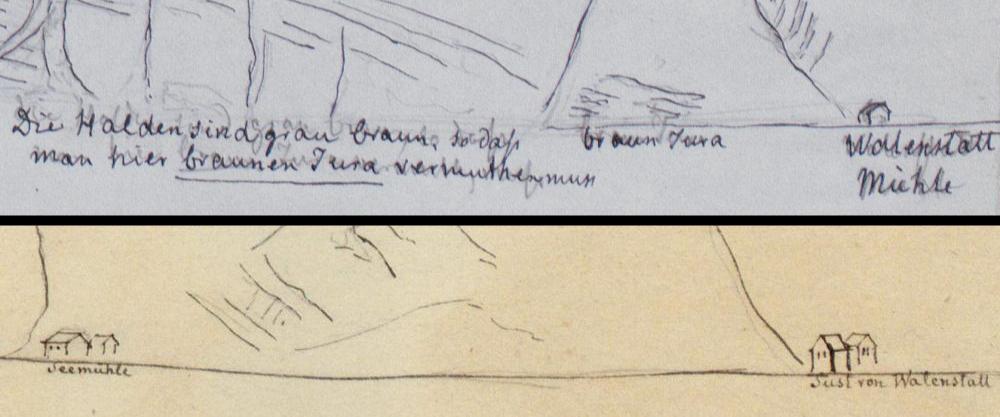 Die Halden sind grau braun, so daß
man hier braunen Jura vermuthen muss
braun Jura
Walenstatt
Mühle
Seemühle
Sust von Walenstatt